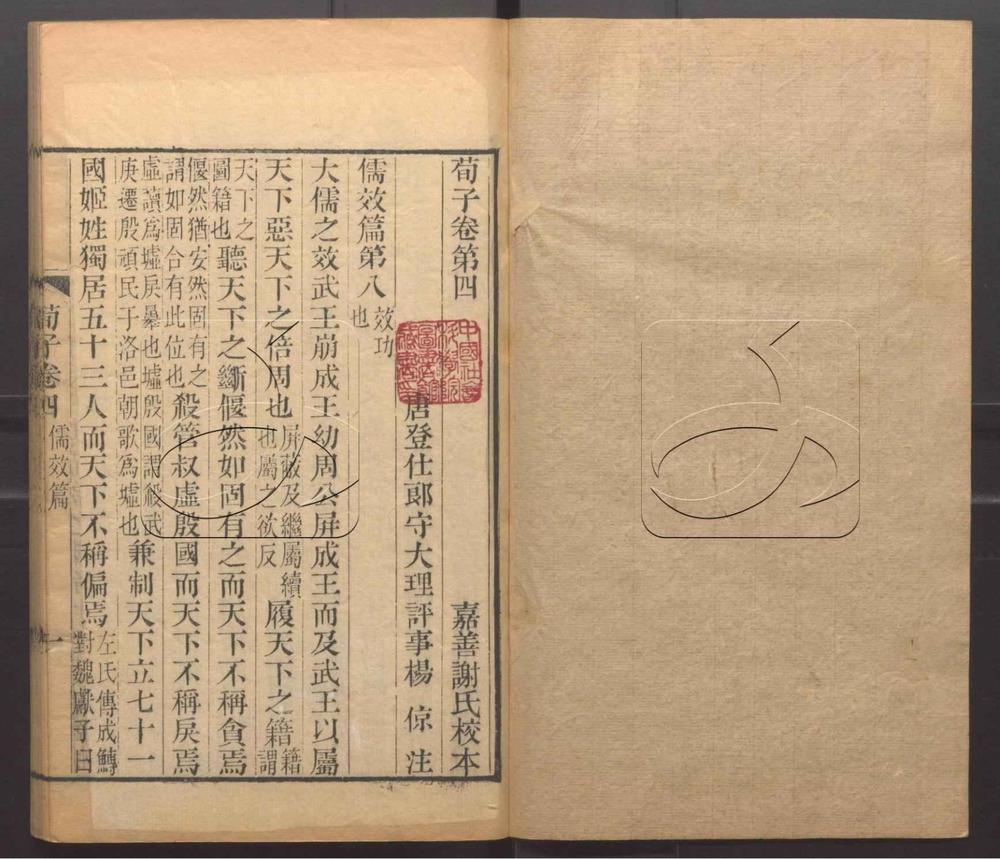 荀子卷第四 嘉善謝氏校本
唐登仕郎守大理評事楊 倞 注
儒效篇第八 效功也
大儒之效武王崩成王幼周公屏成王而及武王以屬
天下惡天下之倍周也 屏蔽及繼屬續也屬之欲反 履天下之籍 籍謂
天下之圖籍也 聽天下之斷偃然如固有之而天下不稱貪焉
偃然猶安然固有之謂如固合有此位也 殺管叔虛殷國而天下不稱戾焉
虛讀為墟戾暴也墟殷國謂殺武庚遷殷頑民于洛邑朝歌為墟也 兼制天下立七十一
國姬姓獨居五十三人而天下不稱偏焉 左氏傳成鱄對魏獻子曰
荀子卷四 儒效篇 一
中國社會科學院圖書館藏書